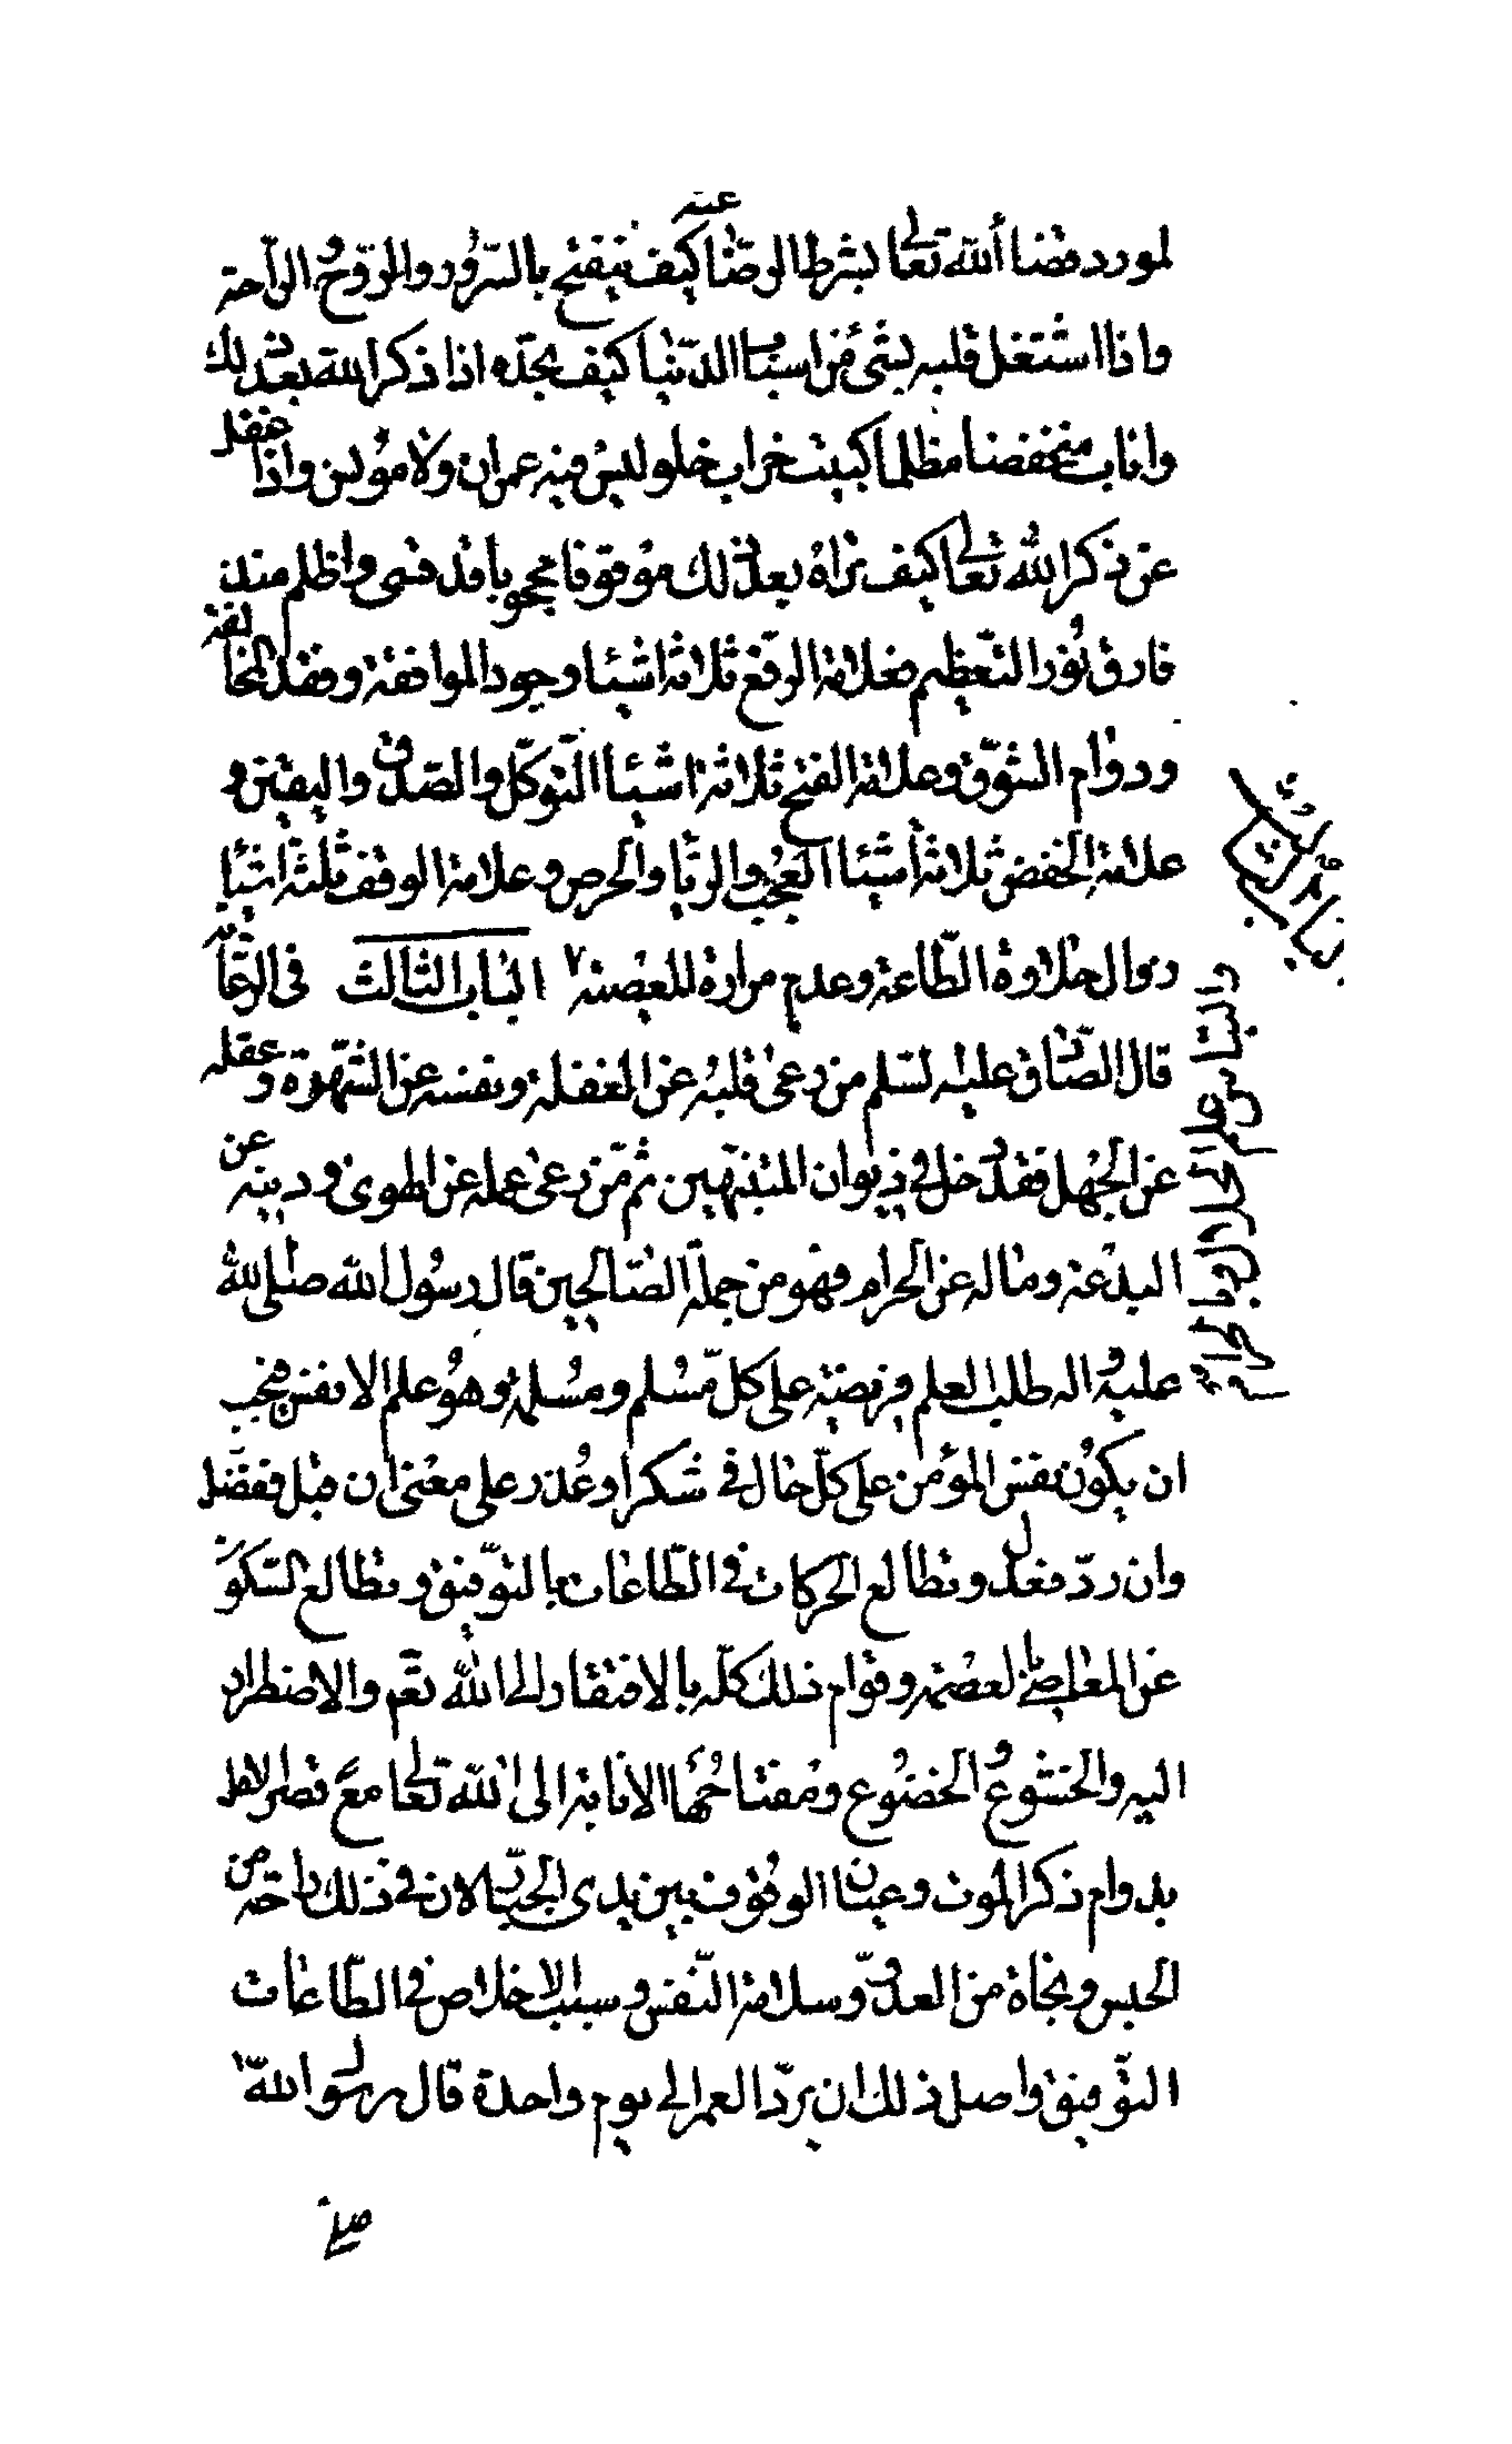 لمورد قضاأ الله تعالى بشرط الرضا عنه كيف ينفتح بالسرور والروح والراحة
واذا اشتغل قلبه بشئ من اسباب الدنيا كيف تجده اذا ذكر الله بعد ذلك
واناب منخفضا مظلما كبيت خراب خلو ليس فيه عمران ولا مونس واذا غفل
عن ذكر الله تعالى كيف تراه بعد ذلك موقوفا محجوبا قد قسى واظلم منذ
فارق نور التعظيم فعلامة الرفع ثلاثة اشيئا وجود الموافقة وفقد المخالفة
ودوام الشوق وعلامة الفتح ثلاثة اشيئا التوكل والصدق واليقين و
علامة الخفض ثلاثة اشيئا العجب والريا والحرص وعلامة الوقف ثلثة اشيئا
زوال حلاوة الطاعة وعدم مرارة المعصية الباب الثالث في الرعاية
قال الصادق عليه لسلم من رعى قلبه عن الغفلة ونفسه عن الشهوة وعقله
عن الجهل فقد دخل في ديوان المتنبهين ثم من رعى عمله عن الهوى ودينه عن
البدعة وماله عن الحرام فهو من جملة الصالحين قال رسول الله صلى الله
عليه واله طلب العلم فريضة على كل مسلم ومسلمة وهو علم الانفس فيجب
ان يكون نفس المؤمن على كل حال في شكر او عذر على معنى ان قبل ففضل
وان رد فعدل وتطالع الحركات في الطاعات بالتوفيق وتطالع السكون
عن المعاصي بالعصمة وقوام ذلك كله بالافتقار الى الله تعم والاضطرار
اليه والخشوع والخضوع ومفتاحها الانابة الى الله تعالى مع قصر الامل
بدوام ذكر الموت وعيان الوقوف بين يدى الجبار لان في ذلك راحة من
الحبس ونجاة من العدو وسلامة النفس وسبب الاخلاص في الطاعات
التوفيق واصل ذلك ان يرد العمر الى يوم واحدة قال رسول الله